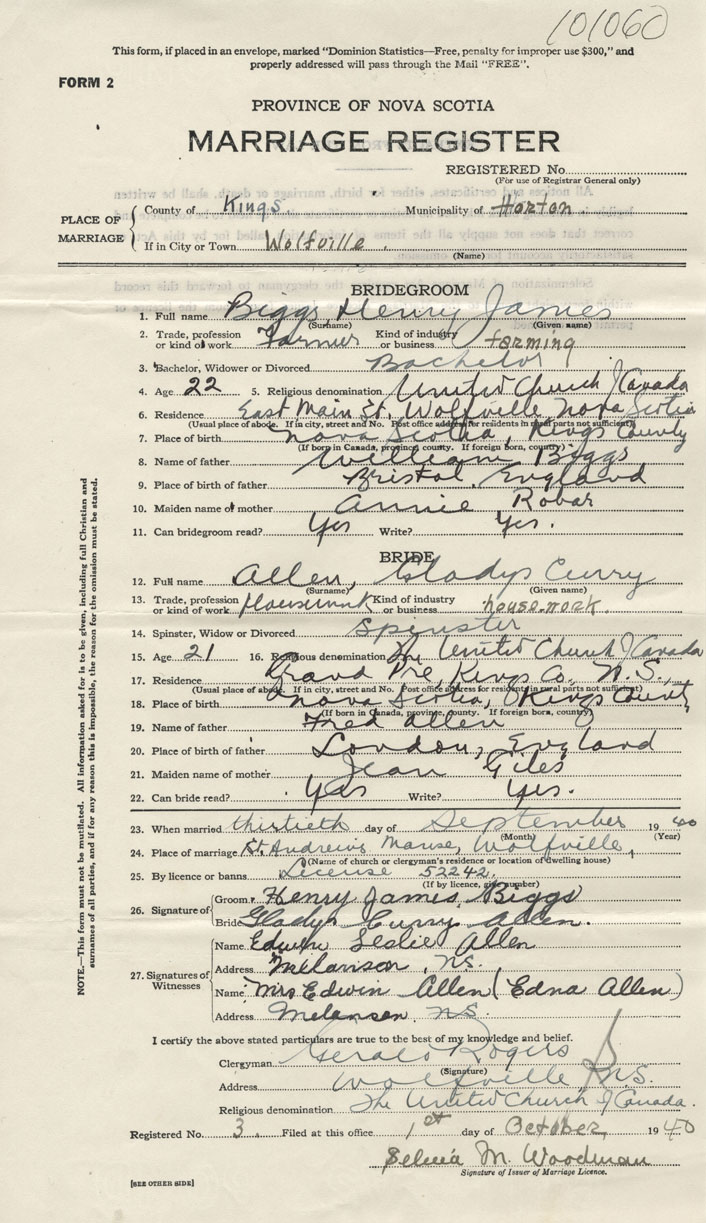 101060
This form, if placed in an envelope, marked "Dominion Statistics—Free, penalty for improper use $300," and
properly addressed will pass through the Mail "FREE".
FORM 2
PROVINCE OF NOVA SCOTIA
MARRIAGE REGISTER
REGISTERED No.
(For use of Registrar General only)
PLACE OF MARRIAGE { County of Kings Municipality of Horton
If in City or Town Wolfville
(Name)
BRIDEGROOM
1. Full name Biggs, Henry James
(Surname) (Given name)
2. Trade, profession or kind of work Farmer Kind of industry or business farming
3. Bachelor, Widower or Divorced Bachelor
4. Age 22 5. Religious denomination United Church of Canada
6. Residence East Main St. Wolfville Nova Scotia
(Usual place of abode. If in city, street and No. Post office address for residents in rural parts not sufficient)
7. Place of birth Nova Scotia, Kings County
(If born in Canada, province, county. If foreign born, country)
8. Name of father William Biggs
9. Place of birth of father Bristol, England
10. Maiden name of mother Annie Robar
11. Can bridegroom read? Yes Write? Yes.
BRIDE
12. Full name Allen, Gladys Curry
(Surname) (Given name)
13. Trade, profession or kind of work Housework Kind of industry or business housework.
14. Spinster, Widow or Divorced Spinster
15. Age 21 16. Religious denomination The United Church of Canada
17. Residence Grand Pre, Kings Co. N.S.,
(Usual place of abode. If in city, street and No. Post office address for residents in rural parts not sufficient)
18. Place of birth Nova Scotia, Kings County
(If born in Canada, province, county. If foreign born, country)
19. Name of father Fred Allen
20. Place of birth of father London, England
21. Maiden name of mother Jean Giles
22. Can bride read? Yes Write? Yes.
23. When married thirtieth day of September 1940
(Month) (Year)
24. Place of marriage St. Andrew's Manse, Wolfville,
(Name of church or clergyman's residence or location of dwelling house)
25. By licence or banns License 52242.
(If by licence, give number)
26. Signature of { Groom Henry James Biggs
Bride Gladys Curry Allen.
27. Signatures of Witnesses { Name Edwin Leslie Allen
Address Melanson, N.S.
Name Mrs Edwin Allen (Edna Allen)
Address Melanson N.S.
I certify the above stated particulars are true to the best of my knowledge and belief.
Clergyman Gerald Rogers
(Signature)
Address Wolfville N.S.
Religious denomination The United Church of Canada.
Registered No. 3. Filed at this office 1st day of October, 1940
M. Woodman
Signature of Issuer of Marriage Licence.
[SEE OTHER SIDE]
NOTE.—This form must not be mutilated. All information asked for is to be given, including full Christian and
surnames of all parties, and if for any reason this is impossible, the reason for the omission must be stated.